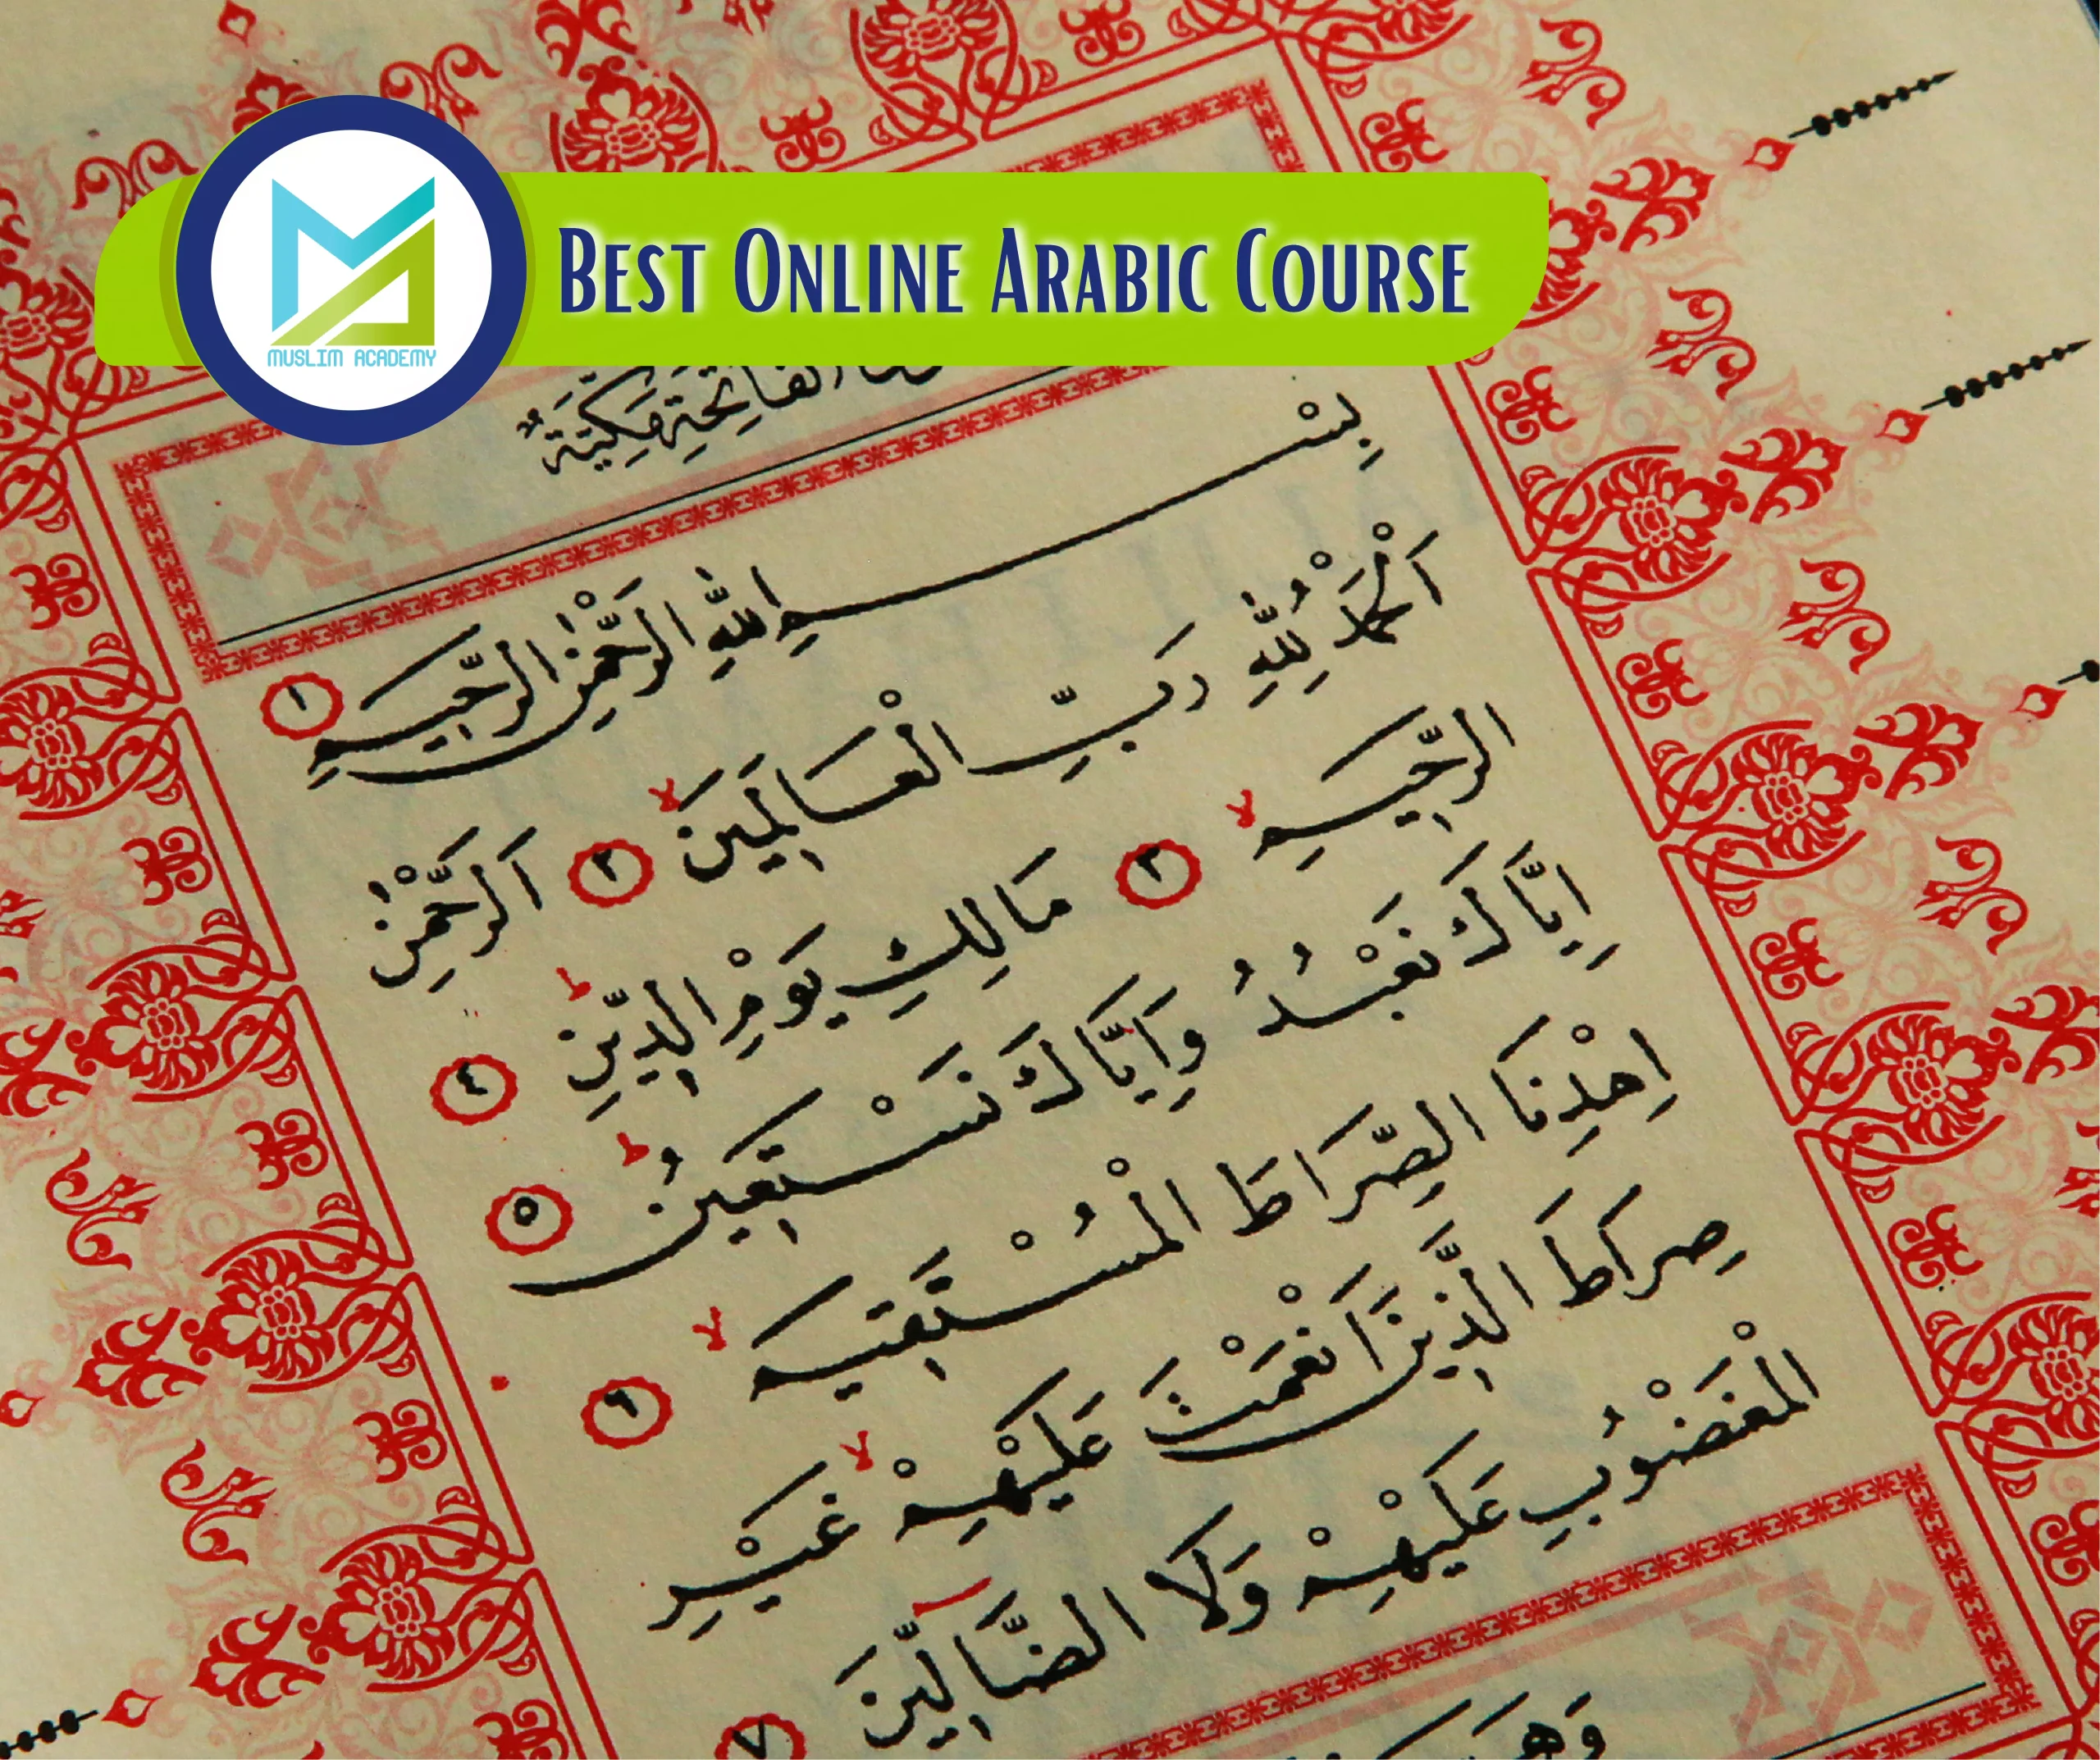 BEST ONLINE ARABIC COURSE
MUSLIM ACADEMY
الفَاتِحَةِ مَكِّيَّةٌ
بِسْــــمِ اللّٰهِ الرَّحْمٰنِ الرَّحِيمِ ١
اَلْحَمْدُ لِلّٰهِ رَبِّ الْعَالَمِينَ ۙ ٢ اَلرَّحْمٰنِ
الرَّحِيمِ ۙ ٣ مَالِكِ يَوْمِ الدِّينِ ۜ ٤
اِيَّاكَ نَعْبُدُ وَاِيَّاكَ نَسْتَعِينُ ۜ ٥
اِهْدِنَا الصِّرَاطَ الْمُسْتَقِيمَ ۙ ٦
صِرَاطَ الَّذِينَ اَنْعَمْتَ عَلَيْهِمْ ۙ غَيْرِ
الْمَغْضُوبِ عَلَيْهِمْ وَلَا الضَّٓالِّينَ ٧